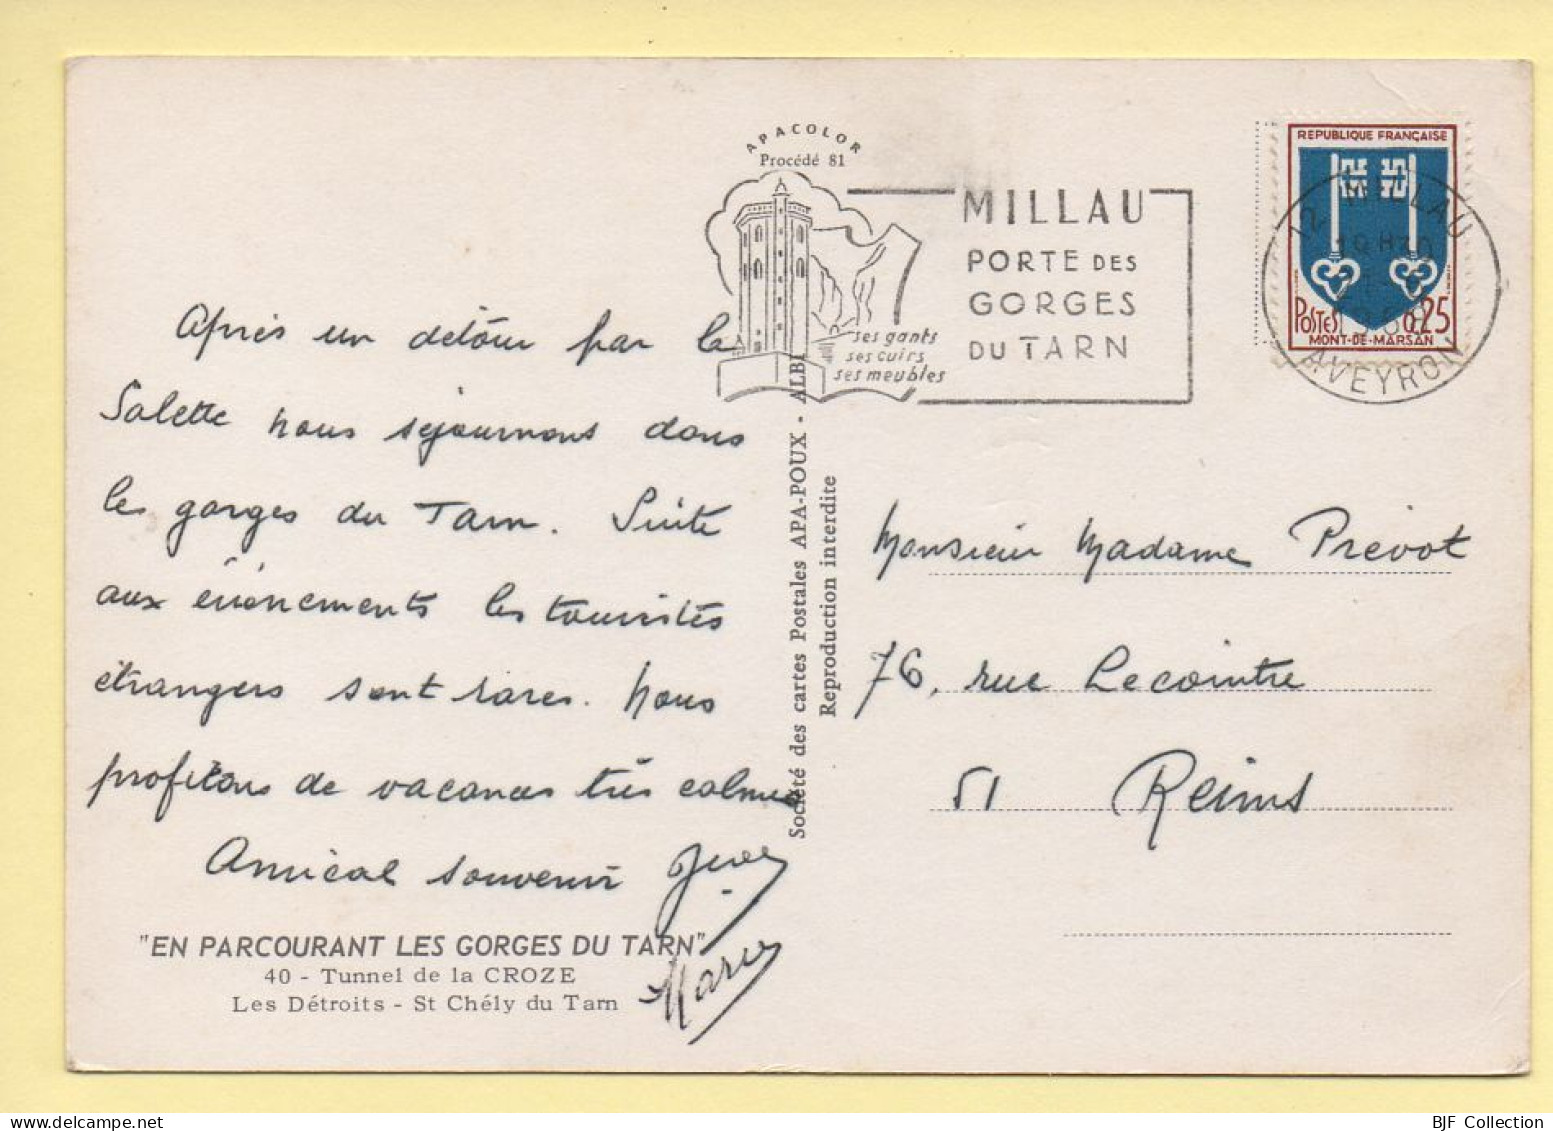 APACOLOR
Procédé 81
MILLAU
PORTE DES
GORGES
DU TARN
ses gants
ses cuirs
ses meubles
REPUBLIQUE FRANÇAISE
POSTES 0,25
MONT-DE-MARSAN
12 MILLAU
19H30
AVEYRON
Après un détour par la
Salette nous séjournons dans
les gorges du Tarn. Suite
aux événements les touristes
étrangers sont rares. Nous
profitons de vacances très calmes
Amical souvenir
"EN PARCOURANT LES GORGES DU TARN"
40 - Tunnel de la CROZE
Les Détroits - St Chély du Tarn
Société des cartes Postales APA-POUX - ALBI
Reproduction interdite
Monsieur Madame Prévot
76, rue Lecointre
51 Reims
BJF Collection